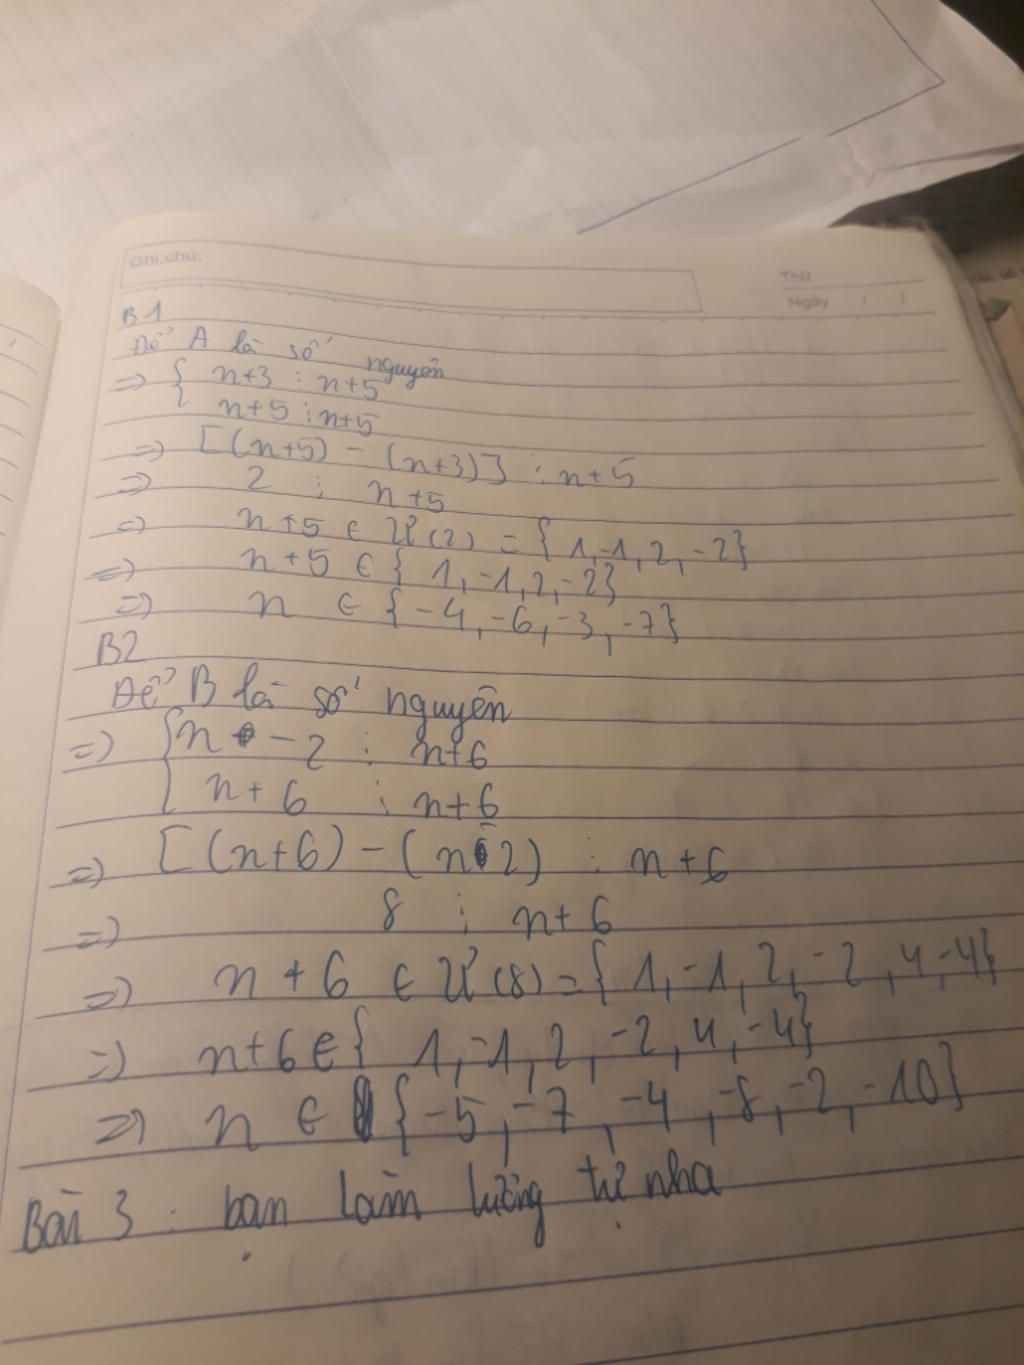 Ghi chú:
Thứ
Ngày / /
B1
Để A là số nguyên
=> { n+3 ⋮ n+5
n+5 ⋮ n+5
=> [(n+5) - (n+3)] ⋮ n+5
=> 2 ⋮ n+5
=> n+5 ∈ Ư(2) = {1,-1,2,-2}
=> n+5 ∈ {1,-1,2,-2}
=> n ∈ {-4,-6,-3,-7}
B2
Để B là số nguyên
=> { n-2 ⋮ n+6
n+6 ⋮ n+6
=> [(n+6)-(n-2) ⋮ n+6
=> 8 ⋮ n+6
=> n+6 ∈ Ư(8)={1,-1,2,-2,4,-4}
=> n+6∈{1,-1,2,-2,4,-4}
=> n ∈ {-5,-7,-4,-8,-2,-10}
Bài 3: bạn làm tương tự nha